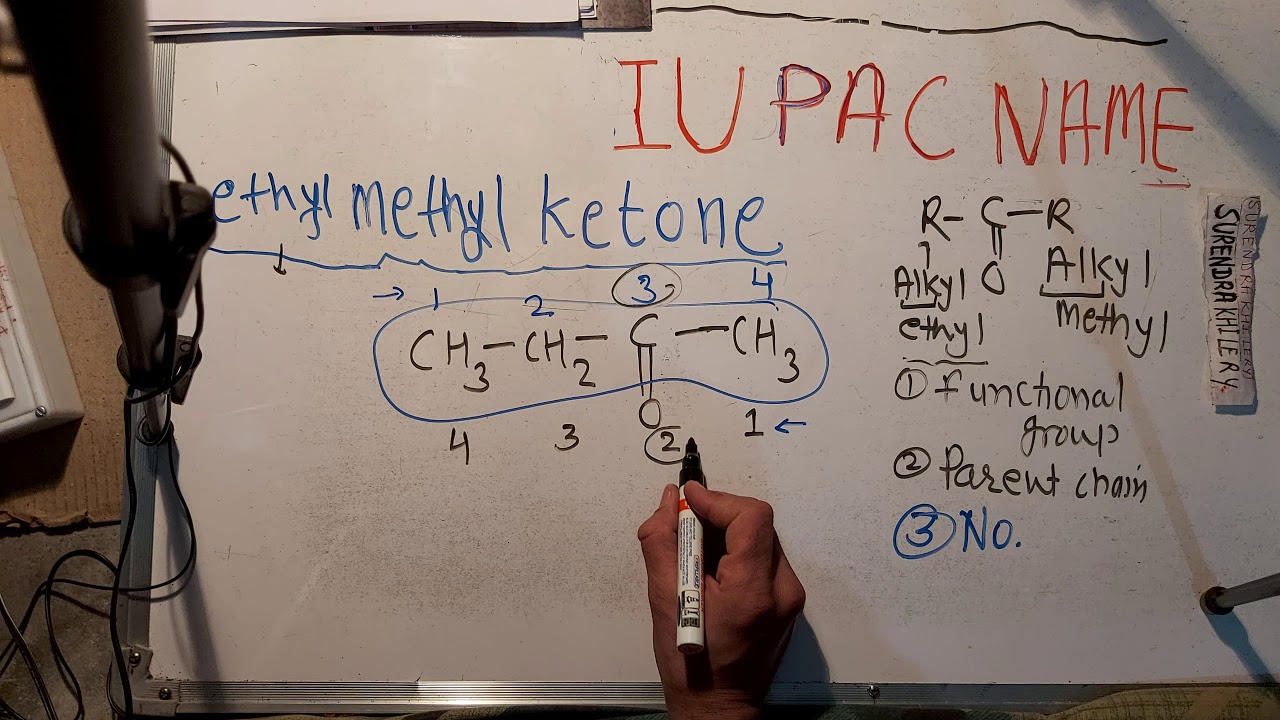 IUPAC NAME
ethyl methyl ketone
→ 1 2 3 4
CH3–CH2–C–CH3
O
4 3 2 1 ←
R–C–R
O
Alkyl Alkyl
ethyl methyl
① functional
group
② Parent chain
③ No.
SURENDRA KHLERY
SURENDRA KHLERY